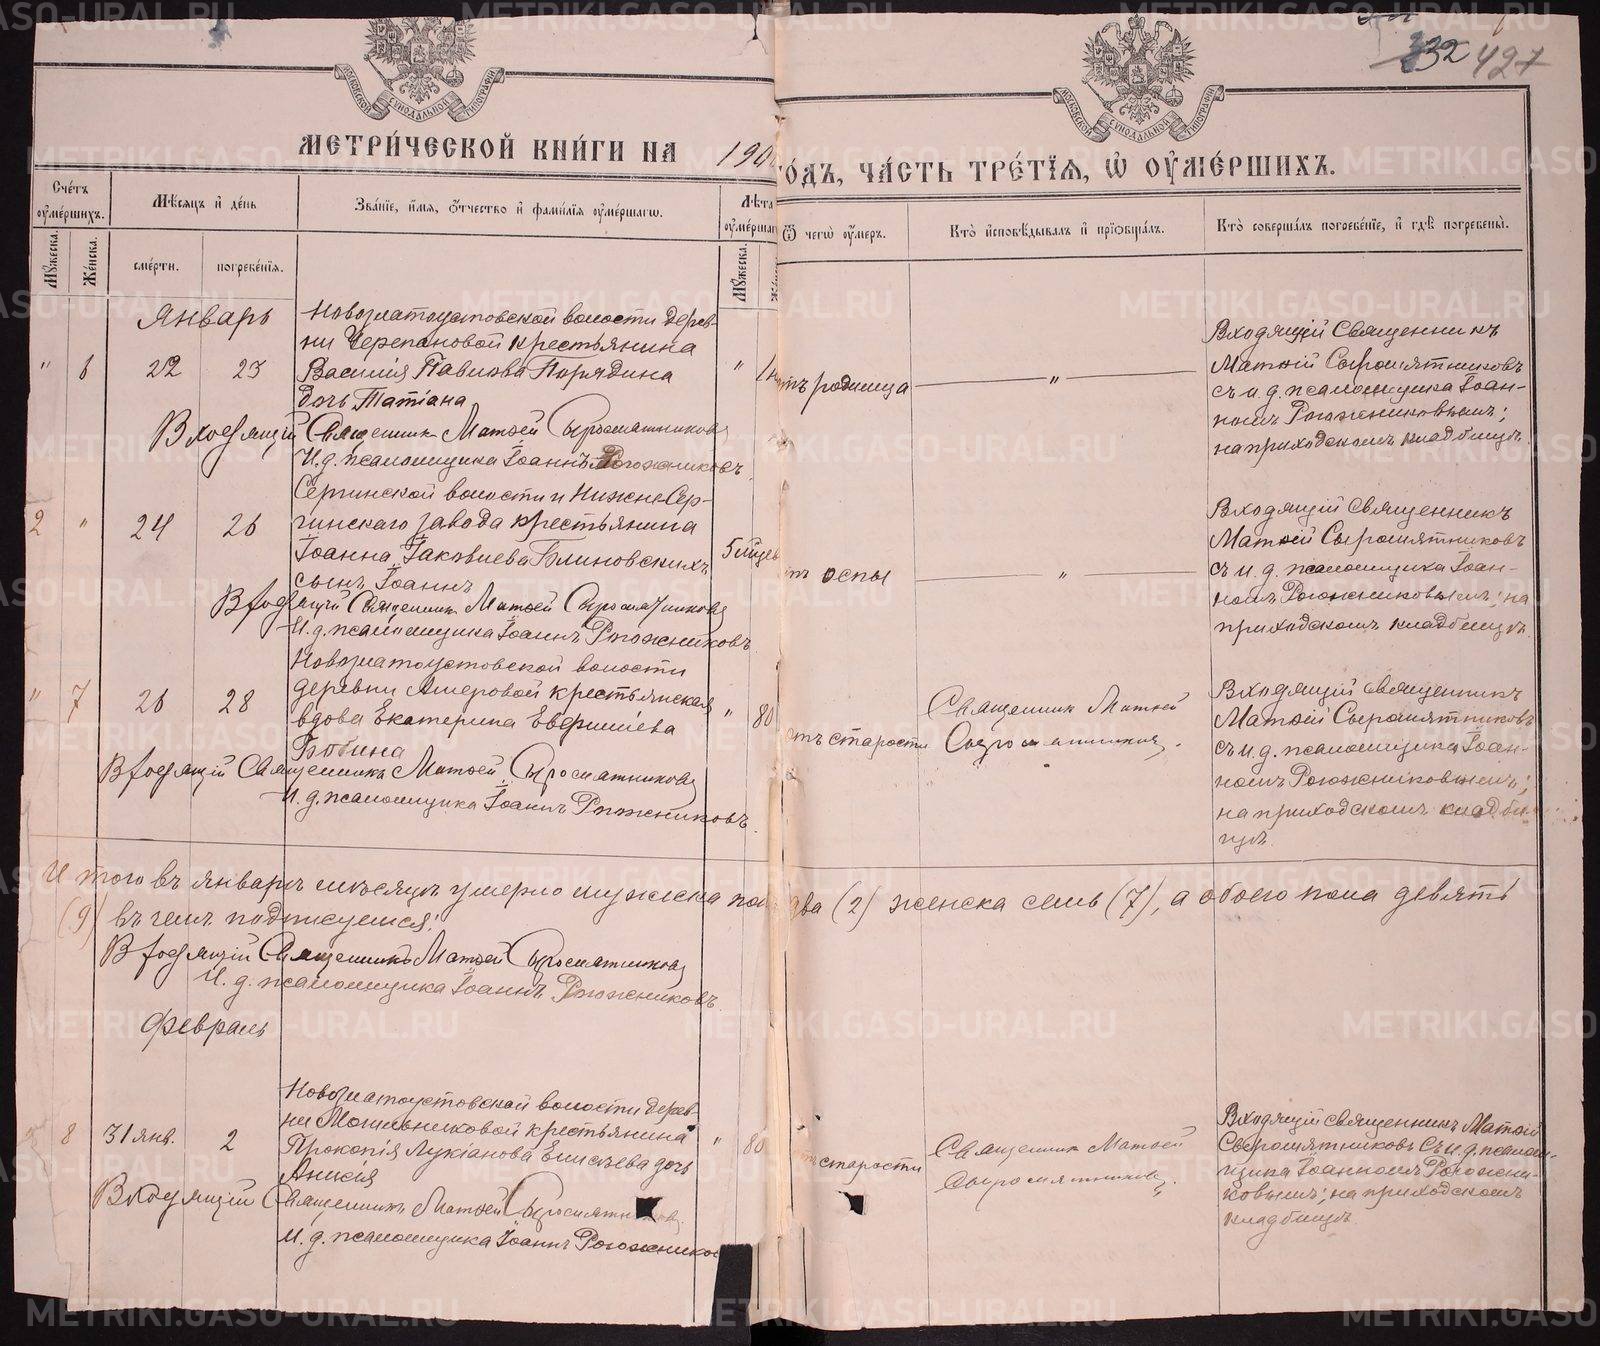 332 427
МОСКОВСКОЙ СѴНОДАЛЬНОЙ ТИПОГРАФІИ
МОСКОВСКОЙ СѴНОДАЛЬНОЙ ТИПОГРАФІИ
МЕТРИ́ЧЕСКОЙ КНИ́ГИ НА 190
ГО́ДЪ, ЧА́СТЬ ТРЕ́ТІѦ, Ѡ ОУ҆МЕ́РШИХЪ.
Сче́тъ оу҆ме́ршихъ.
Мѣ́сяцъ и҆ де́нь
Зва́нїе, и҆́мя, ѻ҆́тчество и҆ фами́лїя оу҆ме́ршагѡ.
Лѣ́та оу҆ме́ршаг
Ѿ чегѡ̀ оу҆́меръ.
Кто̀ и҆сповѣ́дывалъ и҆ прїѡбща́лъ.
Кто̀ соверша́лъ погребе́нїе, и҆ гдѣ̀ погребены̀.
Мꙋ́жеска.
Же́нска.
сме́рти.
погребе́нїя.
Мꙋ́жеска.
Январь
Новозлатоустовской волости дерев-
ни Черепановой крестьянина
" 6 22 23 Василія Павлова Порядина "
дочь Татіана
родимца "
Входящій Священникъ
Матѳій Сыромятниковъ
съ и. д. псаломщика Іоан-
номъ Рогожниковымъ;
на приходскомъ кладбищѣ.
Входящій Священникъ Матѳей Сыромятниковъ
И. д. псаломщика Іоаннъ Рогожниковъ
Сергинской волости и Нижне Сер-
2 " 24 26 гинскаго завода крестьянина
Іоанна Іаковлева Блиновскихъ
сынъ Іоаннъ
5 мѣсяцев
оспы "
Входящій Священникъ
Матѳей Сыромятниковъ
съ и. д. псаломщика Іоан-
номъ Рогожниковымъ; на
приходскомъ кладбищѣ.
Входящій Священникъ Матѳей Сыромятниковъ
И. д. псаломщика Іоаннъ Рогожниковъ
Новозлатоустовской волости
" 7 26 28 деревни Амеровой крестьянская " 80
вдова Екатерина Евфиміева
Бобина
отъ старости
Священникъ Матѳей
Сыромятниковъ.
Входящій Священникъ
Матѳій Сыромятниковъ
съ и. д. псаломщика Іоан-
номъ Рогожниковымъ;
на приходскомъ кладби-
щѣ.
Входящій Священникъ Матѳей Сыромятниковъ
И. д. псаломщика Іоаннъ Рогожниковъ.
Итого въ январѣ мѣсяцѣ умерло мужеска пол два (2) женска семь (7), а обоего пола девять
(9) въ чемъ подпишемся:
Входящій Священникъ Матѳей Сыромятниковъ
И. д. псаломщика Іоаннъ Рогожниковъ
Февраль
Новозлатоустовской волости дерев-
ни Мошельниковой крестьянина
8 31 янв. 2 Прокопія Лукіанова Елисѣева дочь " 80
Анисія
старости
Священникъ Матѳей
Сыромятниковъ.
Входящій священникъ Матѳій
Сыромятниковъ съ и. д. псалом-
щика Іоанномъ Рогожни-
ковымъ; на приходскомъ
кладбищѣ.
Входящій Священникъ Матѳей Сыромятниковъ.
И. д. псаломщика Іоаннъ Рогожников
METRIKI.GASO-URAL.RU